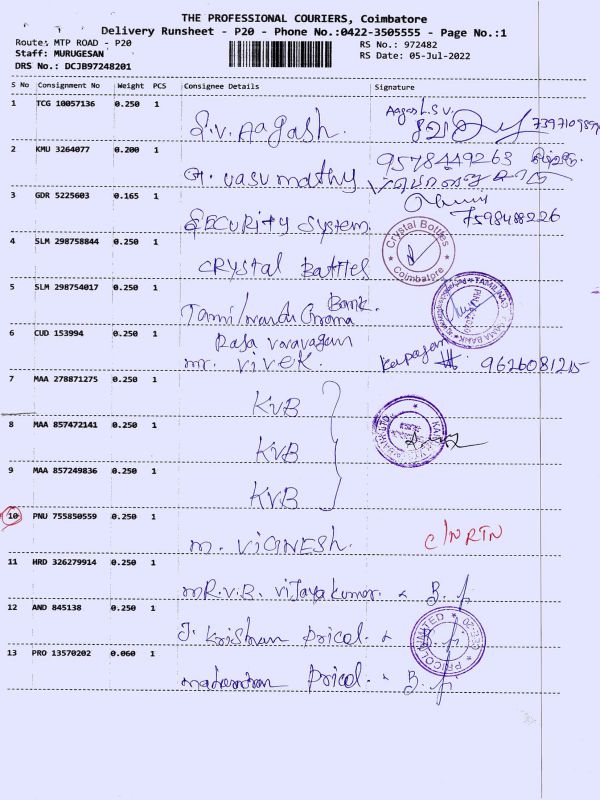 THE PROFESSIONAL COURIERS, Coimbatore
Delivery Runsheet - P20 - Phone No.:0422-3505555 - Page No.:1
Route: MTP ROAD - P20
Staff: MURUGESAN
DRS No.: DCJB97248201
RS No.: 972482
RS Date: 05-Jul-2022
S No Consignment No Weight PCS Consignee Details Signature
1 TCG 10057136 0.250 1 S.V. Aagash. Aagash.S.V.
2 KMU 3264077 0.200 1 vasumathy 9578449263
3 GDR 5225603 0.165 1 SECURITY System. 7598488226
4 SLM 298758844 0.250 1 CRYstal Battles Crystal Bottles Coimbatore
5 SLM 298754017 0.250 1 Tamil Bank.
6 CUD 153994 0.250 1 Raja
mr. VIVEK. 9626081215
7 MAA 278871275 0.250 1 KVB
8 MAA 857472141 0.250 1 KVB
9 MAA 857249836 0.250 1 KVB
10 PNU 755850559 0.250 1 m. VIGNESH. C/N RTN
11 HRD 326279914 0.250 1 mR.V.B. viJaya kumar.
12 AND 845138 0.250 1 J. kristnan pricol. PRICOL LIMITED
13 PRO 13570202 0.060 1 pricol.